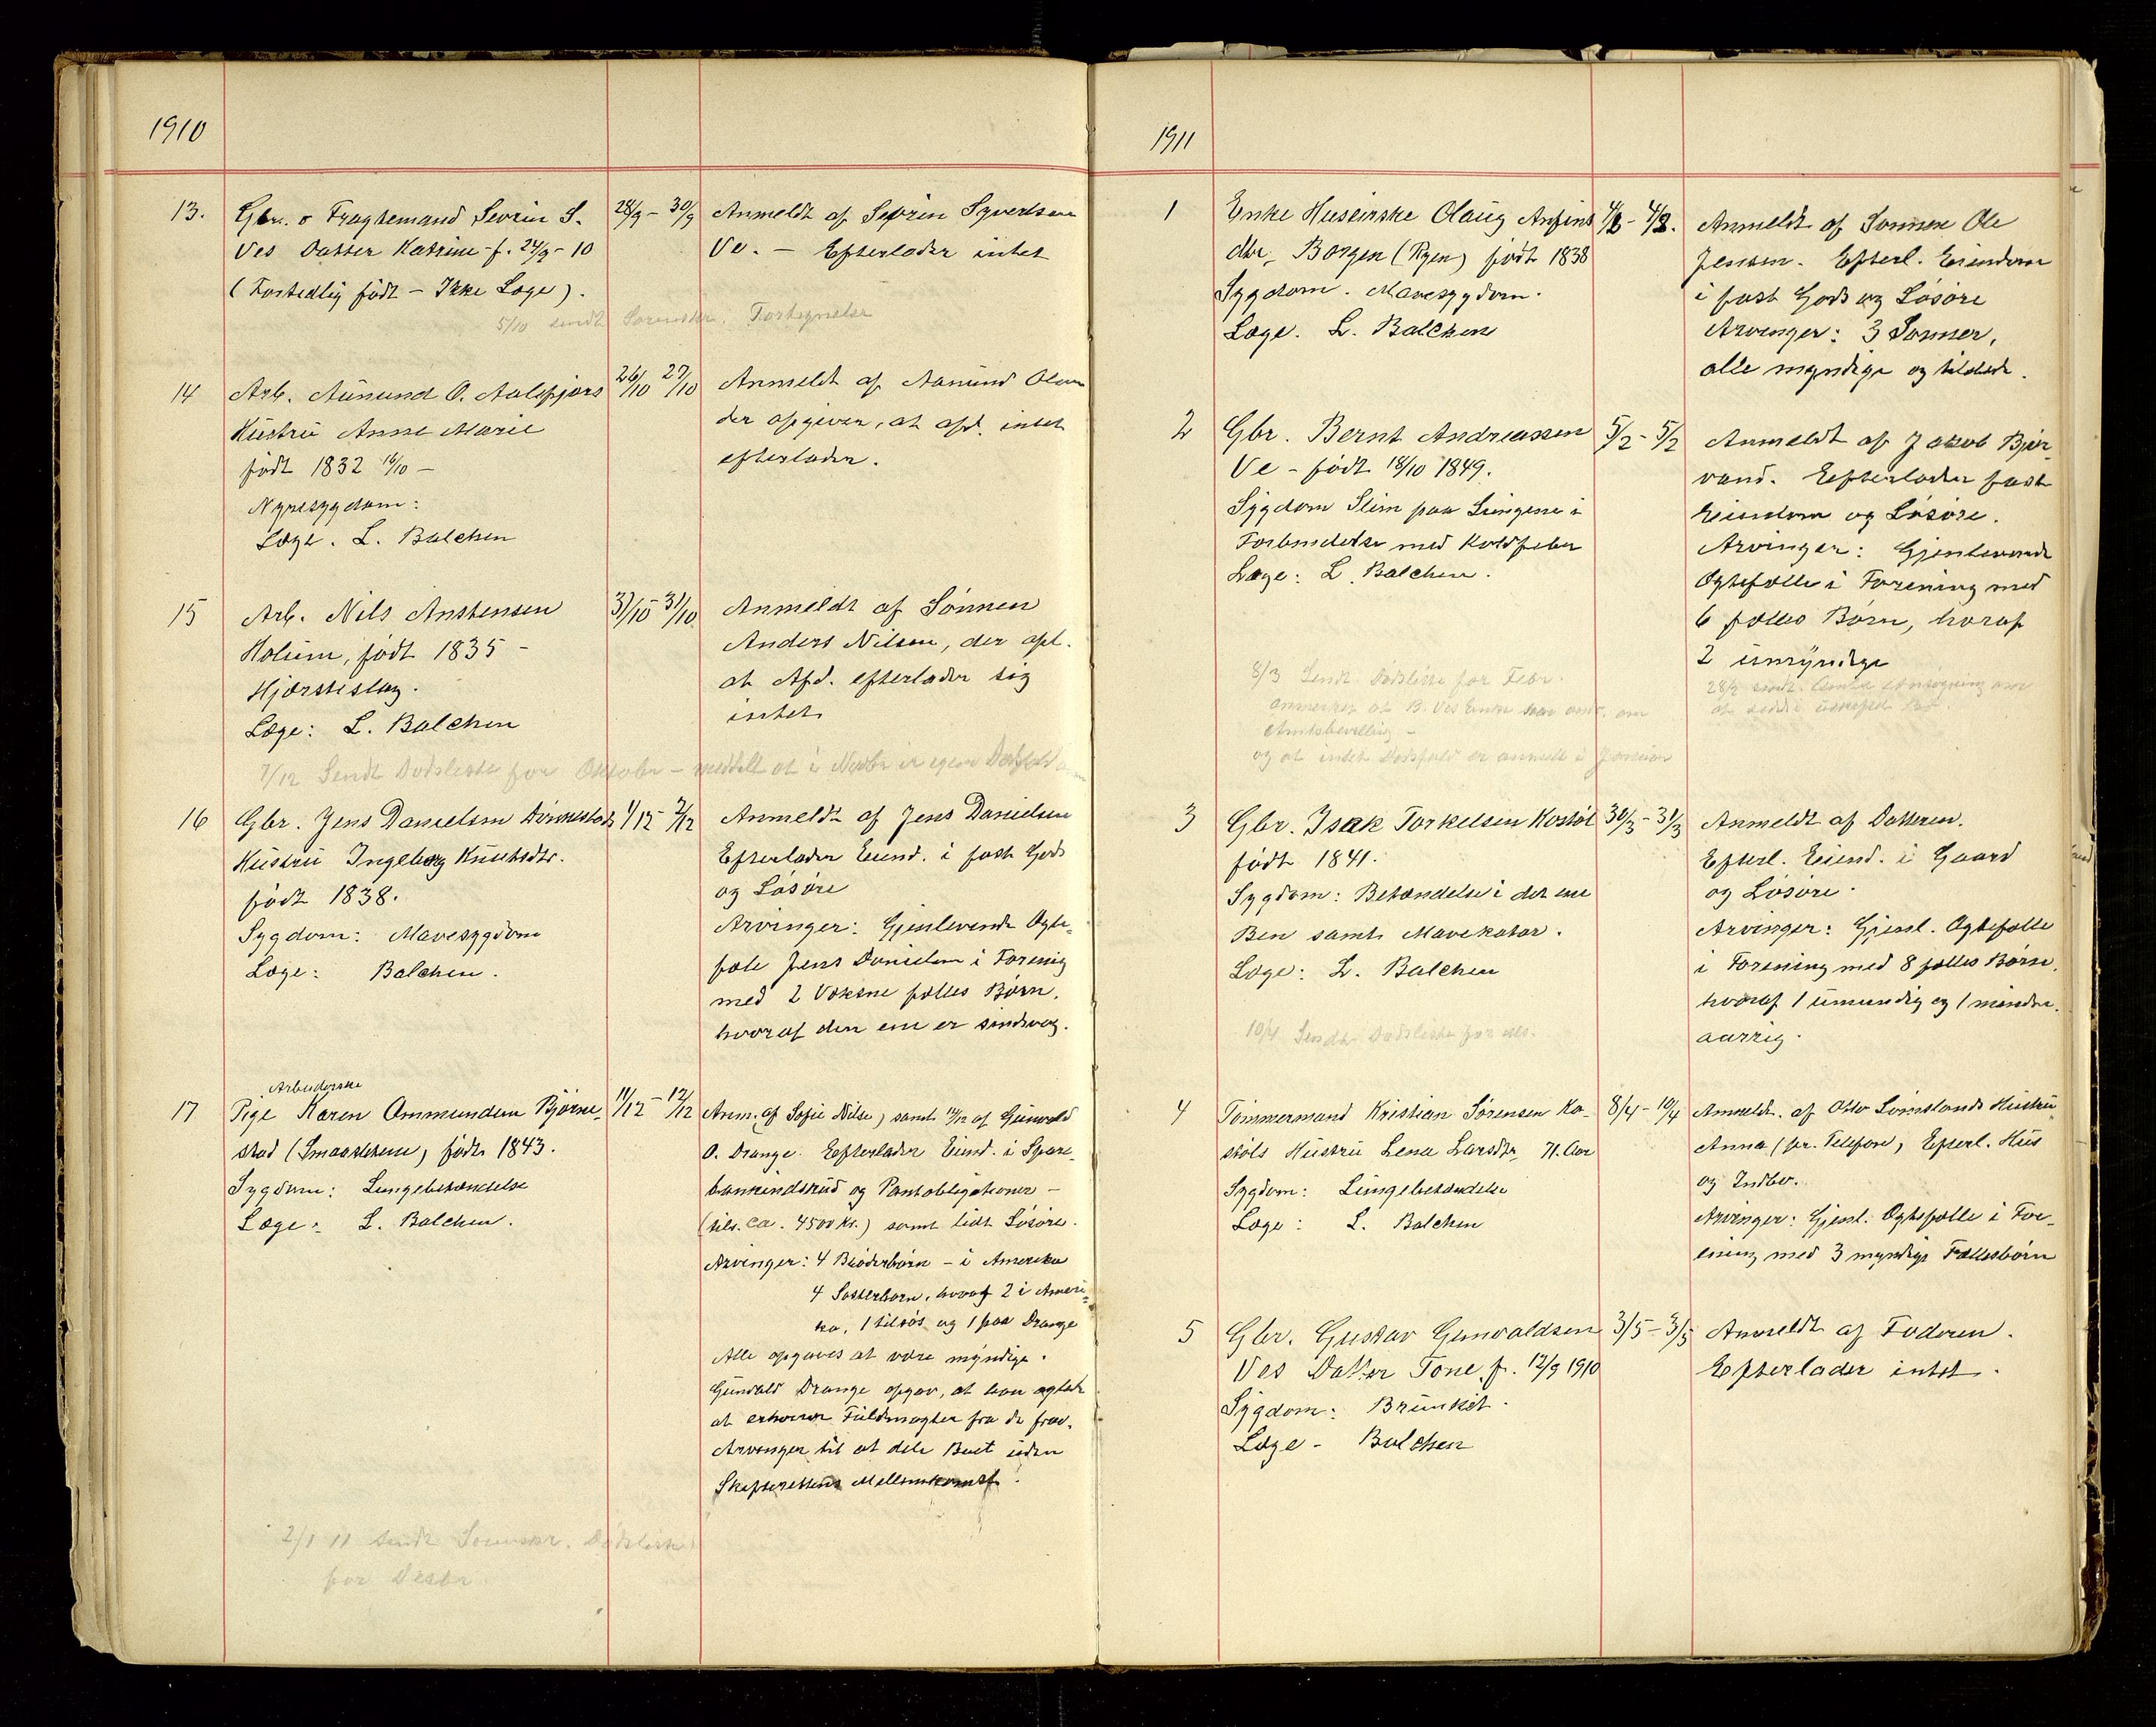 1910
13. Gbr. o Fragtemand Sevrin S. 28/9 - 30/9 Anmeldt af Sevrin Syvertsen
Ves Datter Katrine f. 24/9 - 10 Ve. - Efterlader intet
(Fortidlig født - Ikke Læge).
5/10 sendt Sorenskr. Fortegnelse
14 Arb. Aanund O. Aalefjærs 26/10 27/10 Anmeldt af Aanund Olsen
Hustru Anne Marie der opgiver, at afd. intet
født 1832 16/10 - efterlader.
Nyresygdom:
Læge. L. Balchen
15 Arb. Nils Anstensen 31/10 - 31/10 Anmeldt af Sönnen
Holum, født 1835 - Anders Nilsen, der opl.
Hjærteslag. at Afd. efterlader sig
Læge: L. Balchen intet
7/12 Sendt Dødsliste for Oktober - meddelt at i Novbr er ingen Dødsfald
16 Gbr. Jens Danielsen 1/12 - 2/12 Anmeldt af Jens Danielsen
Hustru Ingeborg Knutsdtr. Efterlader Eiend. i fast Gods
født 1838. og Lösöre
Sygdom: Mavesygdom Arvinger: Gjenlevende Ægte-
Læge: Balchen. fæle Jens Danielsen i Forenig
med 2 Voksne fælles Børn,
hvoraf den ene er sindsvag.
Arbeiderske
17 Pige Karen Ommundsen Bjørne- 11/12 - 12/12 Anm. af Sofie Nilsen, samt 12/12 af Gunvald
stad (Smaasteene) født 1843. O. Drange. Efterlader Eiend. i Spare-
Sygdom: Lungebetændelse bankindskud og Pantobligationer -
Læge: L. Balchen. (tils. ca. 4500 Kr.) samt lidt Lösöre.
Arvinger: 4 Broderbørn - i Amerika
4 Søsterbørn, hvoraf 2 i Ameri-
ka, 1 tilsös og 1 paa Drange
Alle opgaves at være myndige.
Gunvald Drange opgav, at han agtede
at erhverve Fuldmagter fra de frav.
Arvinger til at dele Boet uden
Skifterettens Mellemkomst.
2/1 11 sendt Sorenskr. Dødsliste
for Desbr
1911
1 Enke Huseierske Olaug Anfins 4/2 - 4/2. Anmeldt af Sønnen Ole
dtr. Borgen (Ryen) født 1838 Jensen. Efterl. Eiendom
Sygdom. Mavesygdom. i fast Gods og Lösöre
Læge. L. Balchen Arvinger: 3 Sønner,
alle myndige og tilstede.
2 Gbr. Bernt Andreassen 5/2 - 5/2 Anmeldt af Jakob Bjør-
Ve - født 18/10 1849. vand. Efterlader fast
Sygdom Slim paa Lungene i Eiendom og Lösöre.
Forbindelse med Koldfeber Arvinger: Gjenlevende
Læge: L. Balchen. Ægtefælle i Forening med
6 fælles Børn, hvoraf
2 umyndige
8/3 Sendt Dødsliste for Febr.
anmerket at B. Ves Enke om
Amtsbevilling -
og at intet Dødsfald er anmeldt i Januar
28/2 sendt Amtet Ansøgning om
at sidde i uskiftet Bo
3 Gbr. Isak Torkelsen Kostöl 30/3 - 31/3 Anmeldt af Datteren.
født 1841. Efterl. Eiend. i Gaard
Sygdom: Betændelse i det ene og Lösöre.
Ben samt Mavekatar. Arvinger: Gjenl. Ægtefælle
Læge: L. Balchen i Forening med 8 fælles Børn,
hvoraf 1 umundig og 1 mindre-
aarrig.
10/4 Sendt Dødsliste for
4 Tömmermand Kristian Sørensen Ko- 8/4 - 10/4 Anmeldt. af Otto Lømslands Hustru
støls Hustru Lena Larsdtr. 71. Aar Anna (pr. Telefon), Efterl. Hus
Sygdom: Lungebetændelse og Indbo.
Læge: L. Balchen Arvinger: Gjenl. Ægtefælle i For-
ening med 3 myndige Fællesbörn
5 Gbr. Gustav Gunvaldsen 3/5 - 3/5 Anmeldt af Faderen.
Ves Datter Tone f. 12/9 1910 Efterlader intet.
Sygdom: Brunkit.
Læge - Balchen